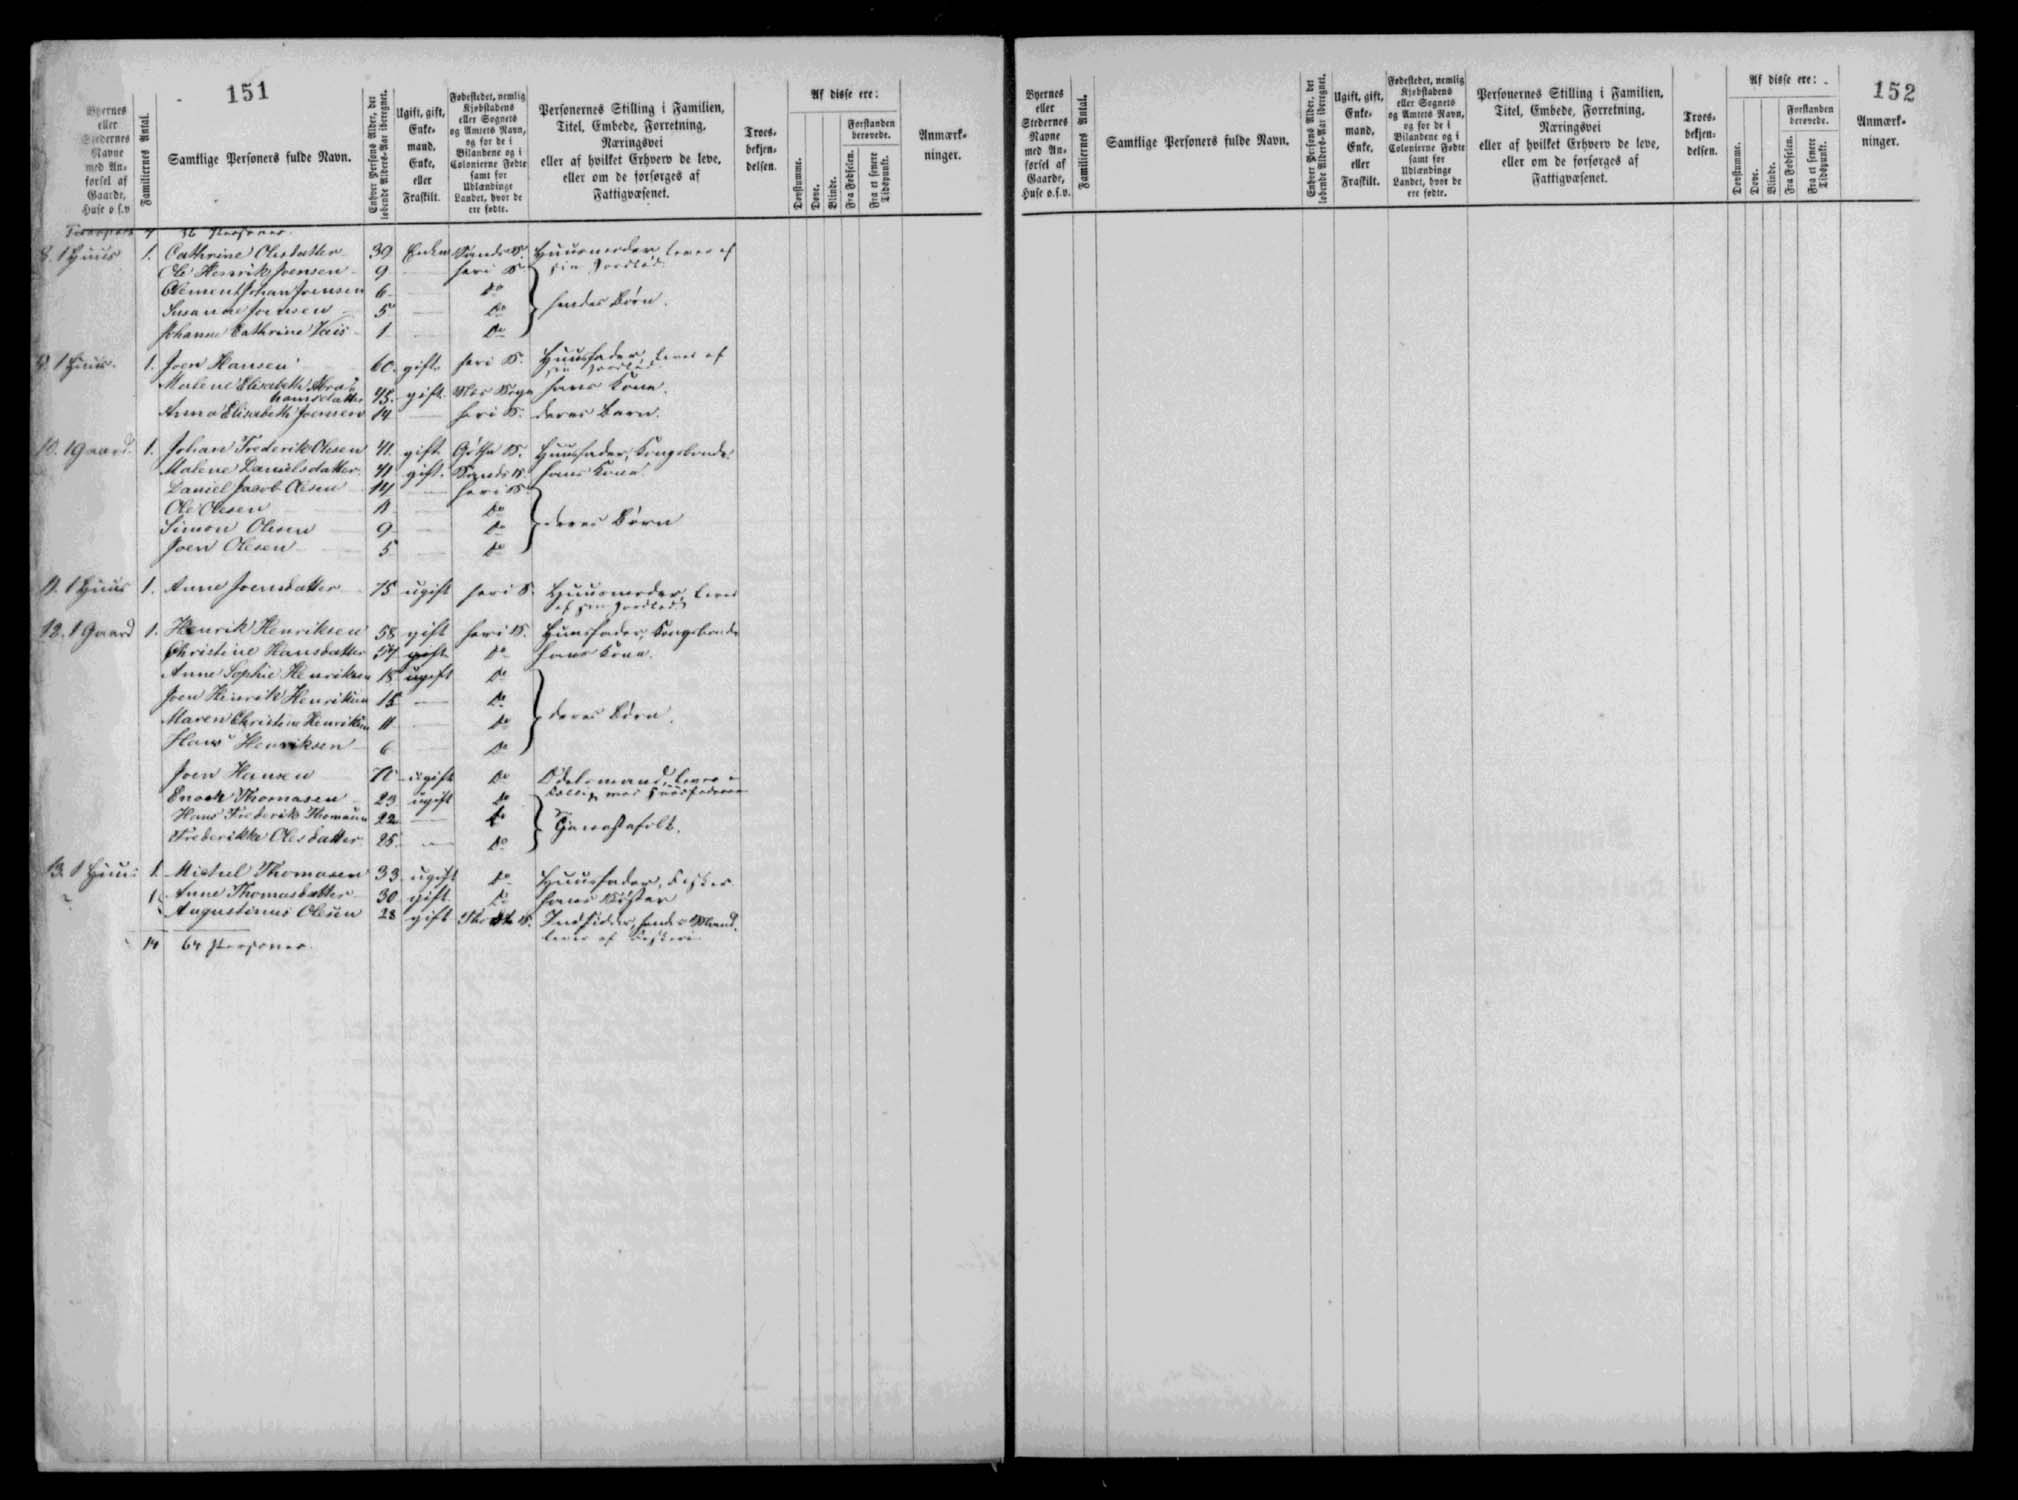 151
Byernes eller Stedernes Navne med Anførsel af Gaarde, Huse o.s.v
Familiernes Antal.
Samtlige Personers fulde Navn.
Enhver Persons Alder, det løbende Alders-Aar iberegnet.
Ugift, gift, Enkemand, Enke, eller Fraskilt.
Fødestedet, nemlig Kjøbstadens eller Sognets og Amtets Navn, og for de i Bilandene og i Colonierne Fødte samt for Udlændinge Landet, hvor de ere fødte.
Personernes Stilling i Familien, Titel, Embede, Forretning, Næringsvei eller af hvilket Erhverv de leve, eller om de forsørges af Fattigvæsenet.
Troesbekjendelsen.
Af disse ere:
Døvstumme.
Døve.
Blinde.
Forstanden berøvede.
Fra Fødselen.
Fra et senere Tidspunkt.
Anmærkninger.
Transport 7 36 Personer.
8. 1 Huus 1. Cathrine Olesdatter 39 Enke Sands S. Huusmoder, lever af
sin Jordlod
Ole Henrik Joensen 9 heri S.
Clement Johan Joensen 6 do
Susanne Joensen 5 do hendes Børn.
Johanne Cathrine 1 do
9. 1 Huus. 1. Joen Hansen 60 gift heri S. Huusfader, lever af
sin Jordlod
Malene Elisabeth Abra-
hamsdatter 45. gift. hans Kone.
Anna Elisabeth Joensen 14 heri S. deres Barn.
10. 1 Gaard. 1. Johan Frederik Olesen 41. gift Gøthe S. Huusfader, Kongsbonde
Malene Danielsdatter 41 gift. Sands S. hans Kone
Daniel Jacob Olesen 14 heri S.
Ole Olesen 11 do
Simon Olesen 9 do deres Børn
Joen Olesen 5 do
11. 1 Huus 1. Anne Joensdatter 75 ugift heri S. Huusmoder, lever
af sin Jordlod
12. 1 Gaard 1. Henrik Henriksen 58 gift heri S. Huusfader, Kongsbonde
Christine Hansdatter 54 gift do hans Kone.
Anne Sophie Henriksen 18 ugift do
Joen Henrik Henriksen 15 do
Maren Christine Henriksen 11 do deres Børn.
Hans Henriksen 6 do
Joen Hansen ugift do Odelsmand, lever i
med Huusfaderen
Enoch Thomasen 23 ugift do
Hans Frederik Thomasen 22 do Tjenestefolk.
Frederikke Olesdatter 25 do
13. 1 Huus 1. Michel Thomasen 33 ugift do Huusfader, Fisker
1 Anne Thomasdatter 30 gift do hans Søster
Augustinus Olesen 28 gift Indsidder, hendes Mand,
lever af Fiskeri
14 64 Personer.
152
Byernes eller Stedernes Navne med Anførsel af Gaarde, Huse o.s.v.
Familiernes Antal.
Samtlige Personers fulde Navn.
Enhver Persons Alder, det løbende Alders-Aar iberegnet.
Ugift, gift, Enkemand, Enke, eller Fraskilt.
Fødestedet, nemlig Kjøbstadens eller Sognets og Amtets Navn, og for de i Bilandene og i Colonierne Fødte samt for Udlændinge Landet, hvor de ere fødte.
Personernes Stilling i Familien, Titel, Embede, Forretning, Næringsvei eller af hvilket Erhverv de leve, eller om de forsørges af Fattigvæsenet.
Troesbekjendelsen.
Af disse ere:
Døvstumme.
Døve.
Blinde.
Forstanden berøvede.
Fra Fødselen.
Fra et senere Tidspunkt.
Anmærkninger.